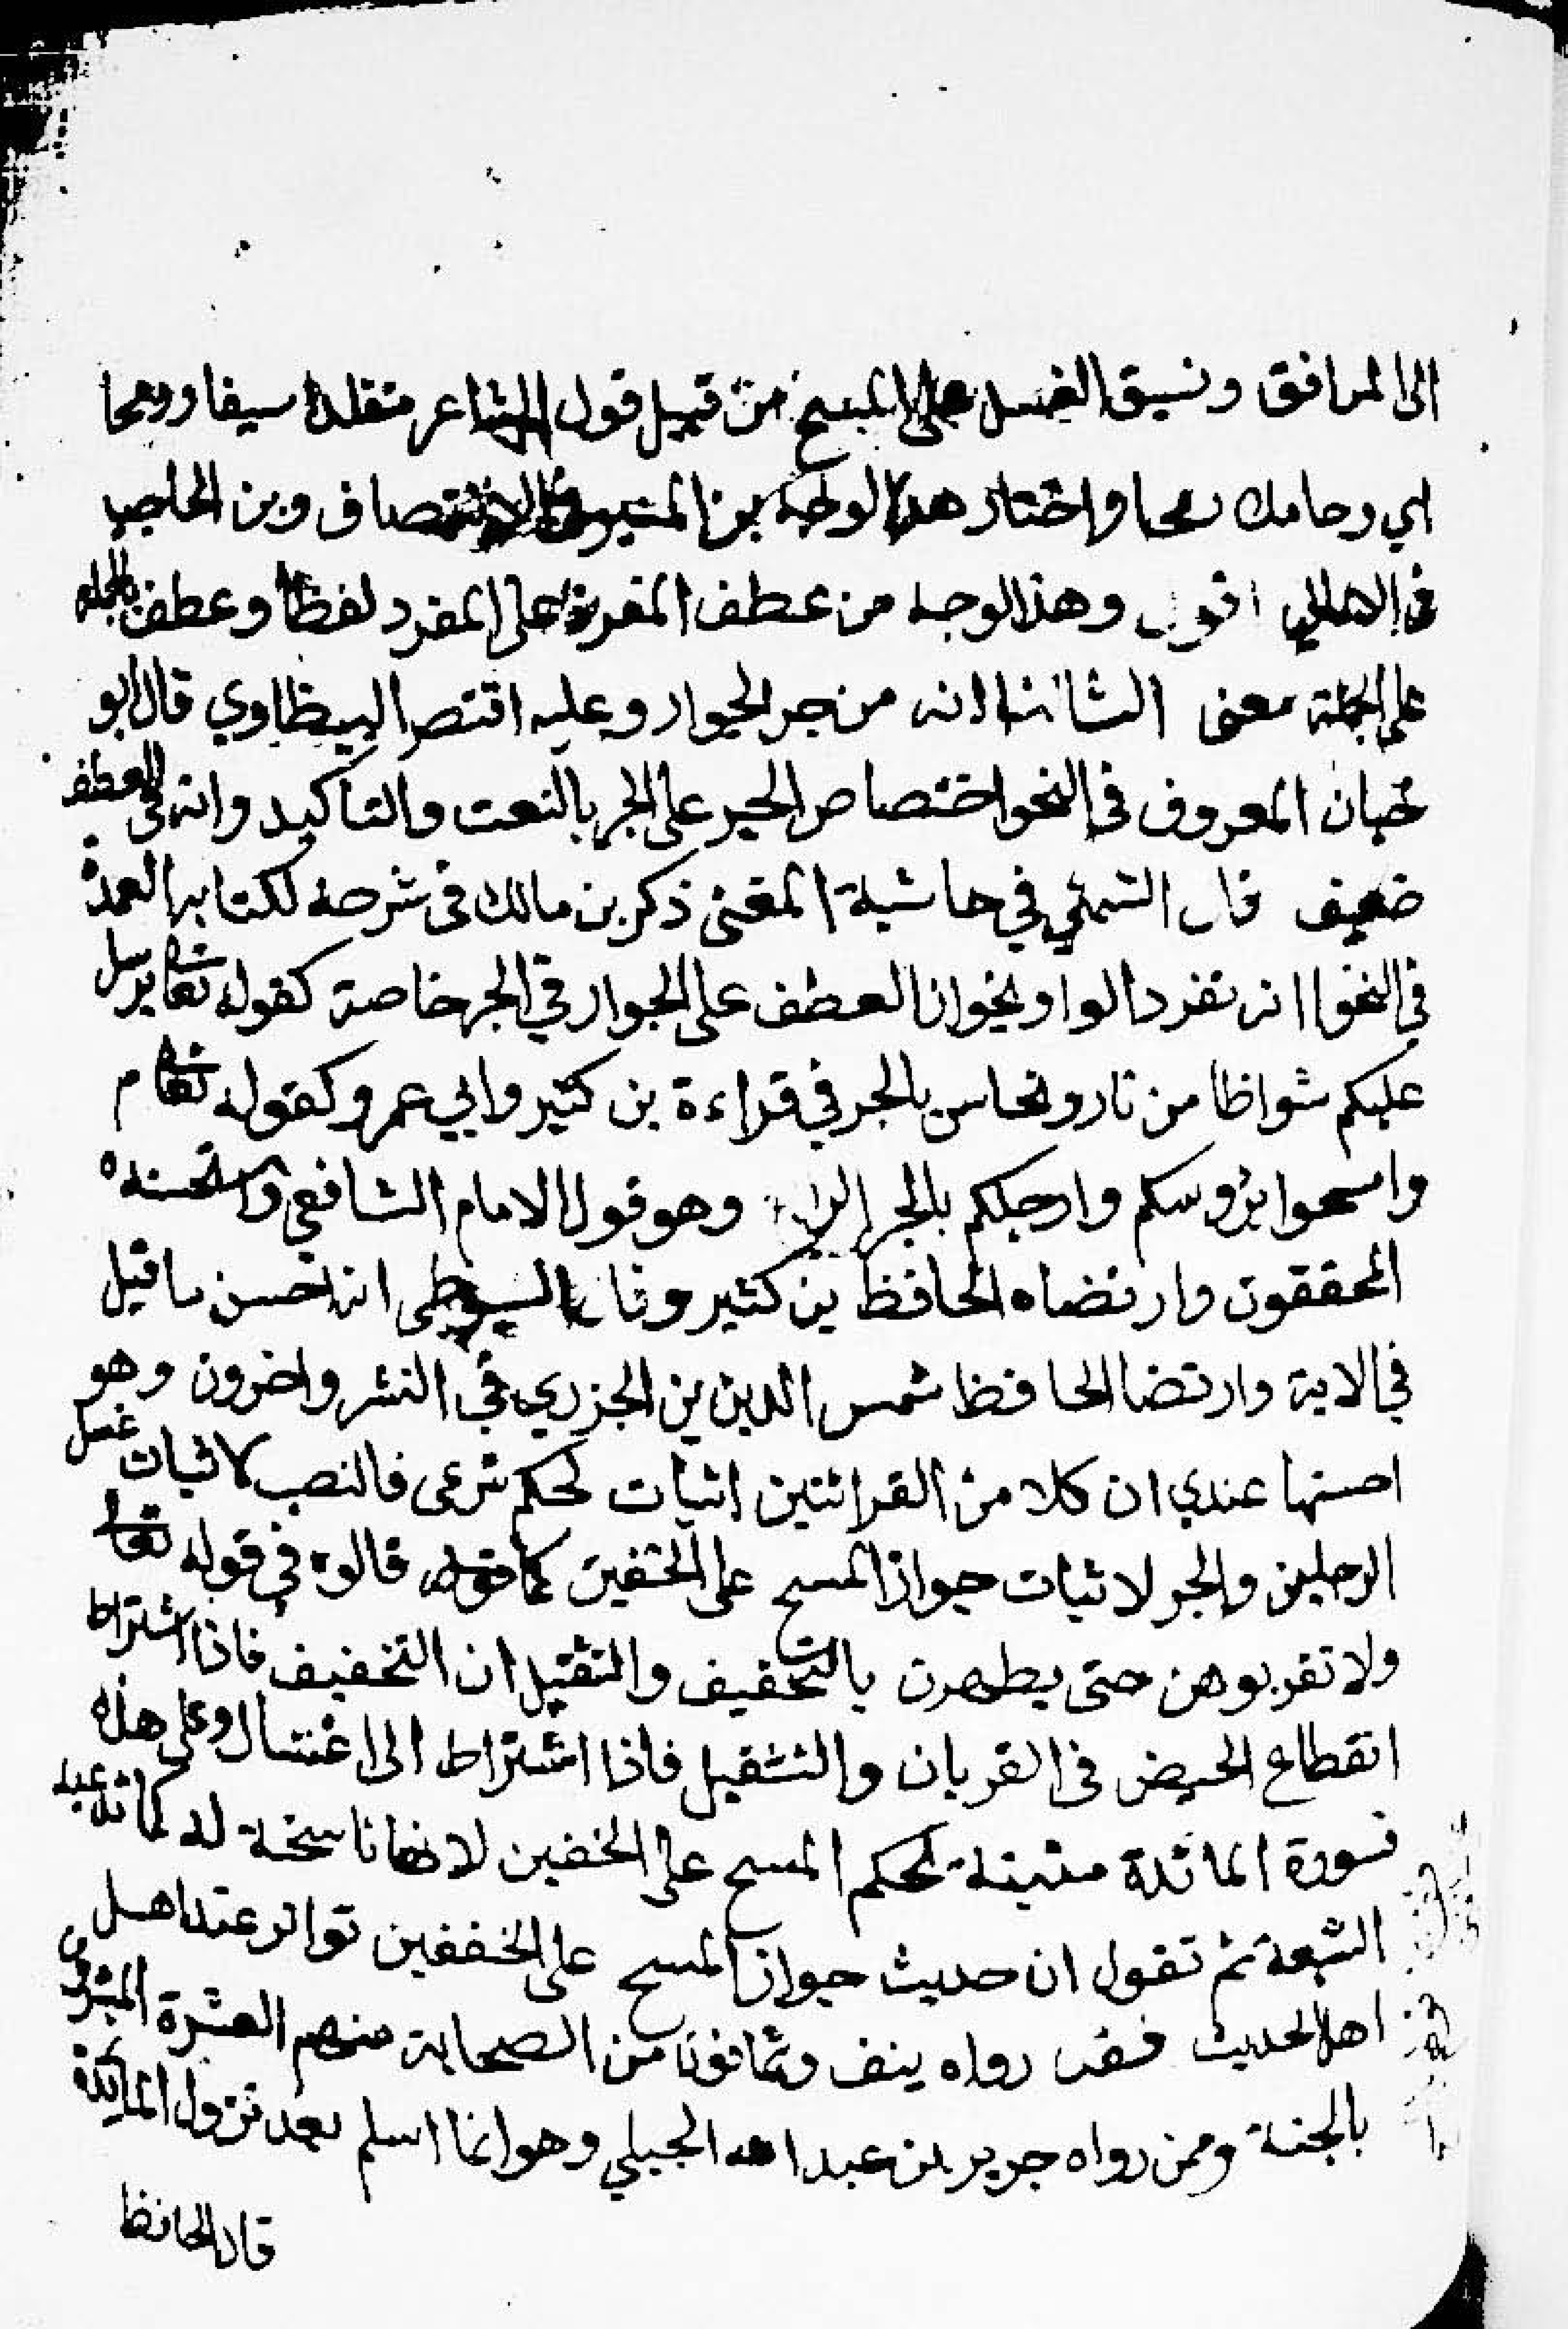 الى المرافق ونسيق الغسل على المسح من قبيل قول الشاعر متقلدا سيفا ورمحا
اي وحامك رمحا واختار هذا الوجه بن المنير في الانتصاف وبن الحاجب
في الامالي اقول وهذالوجه من عطف المفرد على المفرد لفظا وعطف بالجملة
على الجملة معنى الثاني انه من جر الجوار وعليه اقتصر البيظاوي قال ابو
حيان المعروف في النحو اختصاص الجر على الجر بالنعت والتاكيد وانه في العطف
ضعيف قال الشمني في حاشية المغنى ذكر بن مالك في شرحه لكتابه العمدة
في النحو انه تفرد الواو بجواز العطف على الجوار في الجر خاصة كقوله تعا يرسل
عليكم شواظا من نار ونحاس بالجر في قراءة بن كثير وابي عمرو كقوله تعا م
وامسحوا برؤسكم وارجلكم بالجر وهو قول الامام الشافعي واستحسنه
المحققون وارتضاه الحافظ بن كثير وقال السيوطى انه احسن ما قيل
في الاية وارتضا الحافظ شمس الدين بن الجزري في النشر واخرون وهو
احسنها عندي ان كلا من القرائتين اثبات لحكم شرعى فالنصب لاثبات غسل
الرجلين والجر لاثبات جواز المسح على الخفين كما قالوه في قوله تعا
ولا تقربوهن حتى يطهرن بالتخفيف والتثقيل ان التخفيف فاذا اشتراط
انقطاع الحيض في القربان والتثقيل فاذا اشتراط الى اغتسال وعلى هذه
فسورة المائدة مثبتة لحكم المسح على الخفين لا نها ناسخة له كما
الشيعة ثم تقول ان حديث جواز المسح على الخففين تواتر عند اهل
اهل الحديث فقد رواه ينف وثمانون من الصحابة منهم العشرة المبشرين
بالجنة وممن رواه جرير بن عبد الله الجبلي وهو انما اسلم بعد نزول المائدة
قال الحافظ